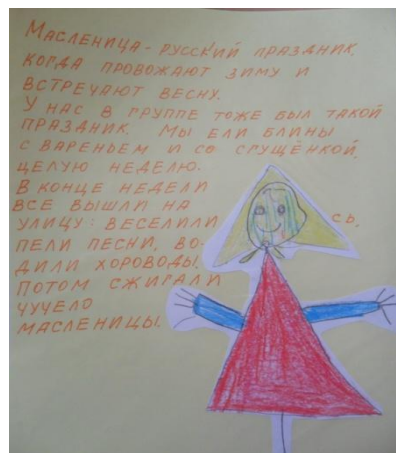 МАСЛЕНИЦА - РУССКИЙ ПРАЗДНИК,
КОГДА ПРОВОЖАЮТ ЗИМУ И
ВСТРЕЧАЮТ ВЕСНУ.
У НАС В ГРУППЕ ТОЖЕ БЫЛ ТАКОЙ
ПРАЗДНИК. МЫ ЕЛИ БЛИНЫ
С ВАРЕНЬЕМ И СО СГУЩЁНКОЙ,
ЦЕЛУЮ НЕДЕЛЮ.
В КОНЦЕ НЕДЕЛИ
ВСЕ ВЫШЛИ НА
УЛИЦУ: ВЕСЕЛИЛИ СЬ,
ПЕЛИ ПЕСНИ, ВО-
ДИЛИ ХОРОВОДЫ,
ПОТОМ СЖИГАЛИ
ЧУЧЕЛО
МАСЛЕНИЦЫ.